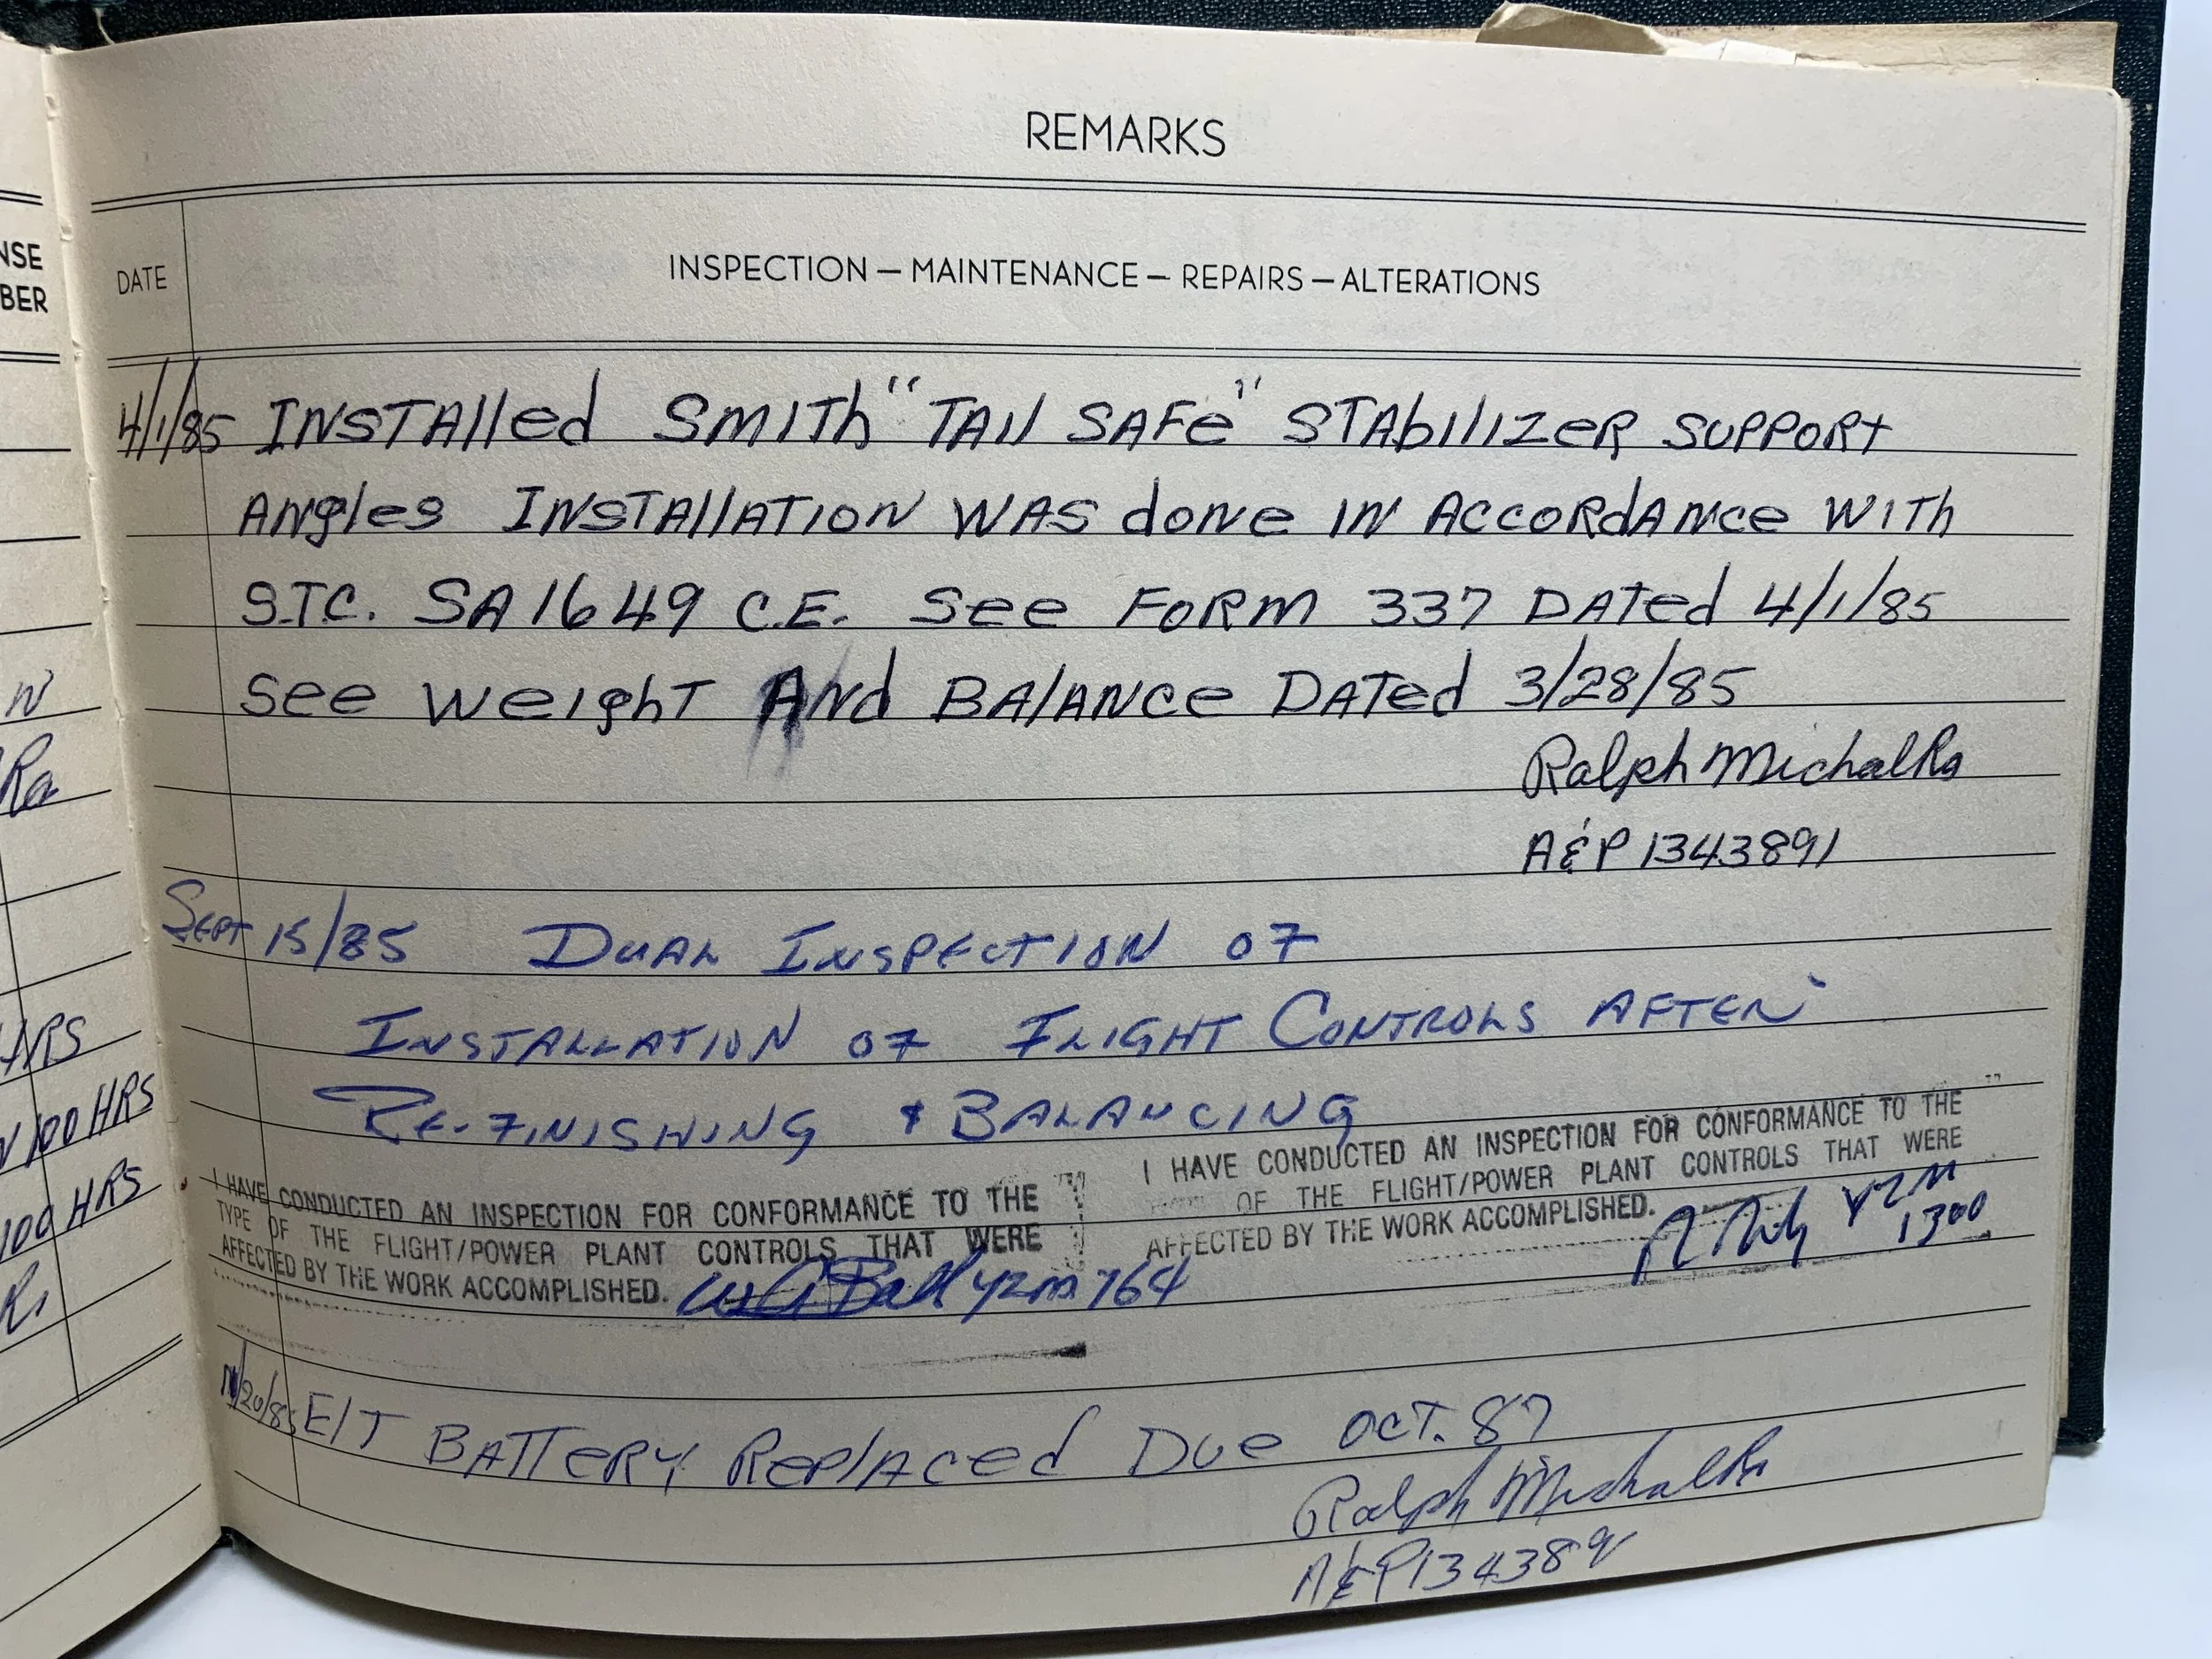 REMARKS
NSE
BER
DATE
INSPECTION — MAINTENANCE — REPAIRS — ALTERATIONS
4/1/85 INSTAlled SMITh "TAIl SAFe" STAbIlIZeR SUPPORt
ANgles INSTAllATION WAS doNe IN AccORdANce WITh
S.T.C. SA1649 C.E. See FORM 337 DATed 4/1/85
See WeIghT ANd BAlANce DATed 3/28/85
N
Ra
Ralph Michalka
A&P 1343891
Sept 15/85 DUAL INSPECTION OF
INSTALLATION OF FLIGHT CONTROLS AFTER
RE-FINISHING & BALANCING
HRS
100 HRS
100 HRS
I HAVE CONDUCTED AN INSPECTION FOR CONFORMANCE TO THE
TYPE OF THE FLIGHT/POWER PLANT CONTROLS THAT WERE
AFFECTED BY THE WORK ACCOMPLISHED. YZM 764
I HAVE CONDUCTED AN INSPECTION FOR CONFORMANCE TO THE
OF THE FLIGHT/POWER PLANT CONTROLS THAT WERE
AFFECTED BY THE WORK ACCOMPLISHED. YZM
1300
/20/85 E/T BATTeRY ReplAced Due OCT. 87
Ralph Michalka
A&P 134389